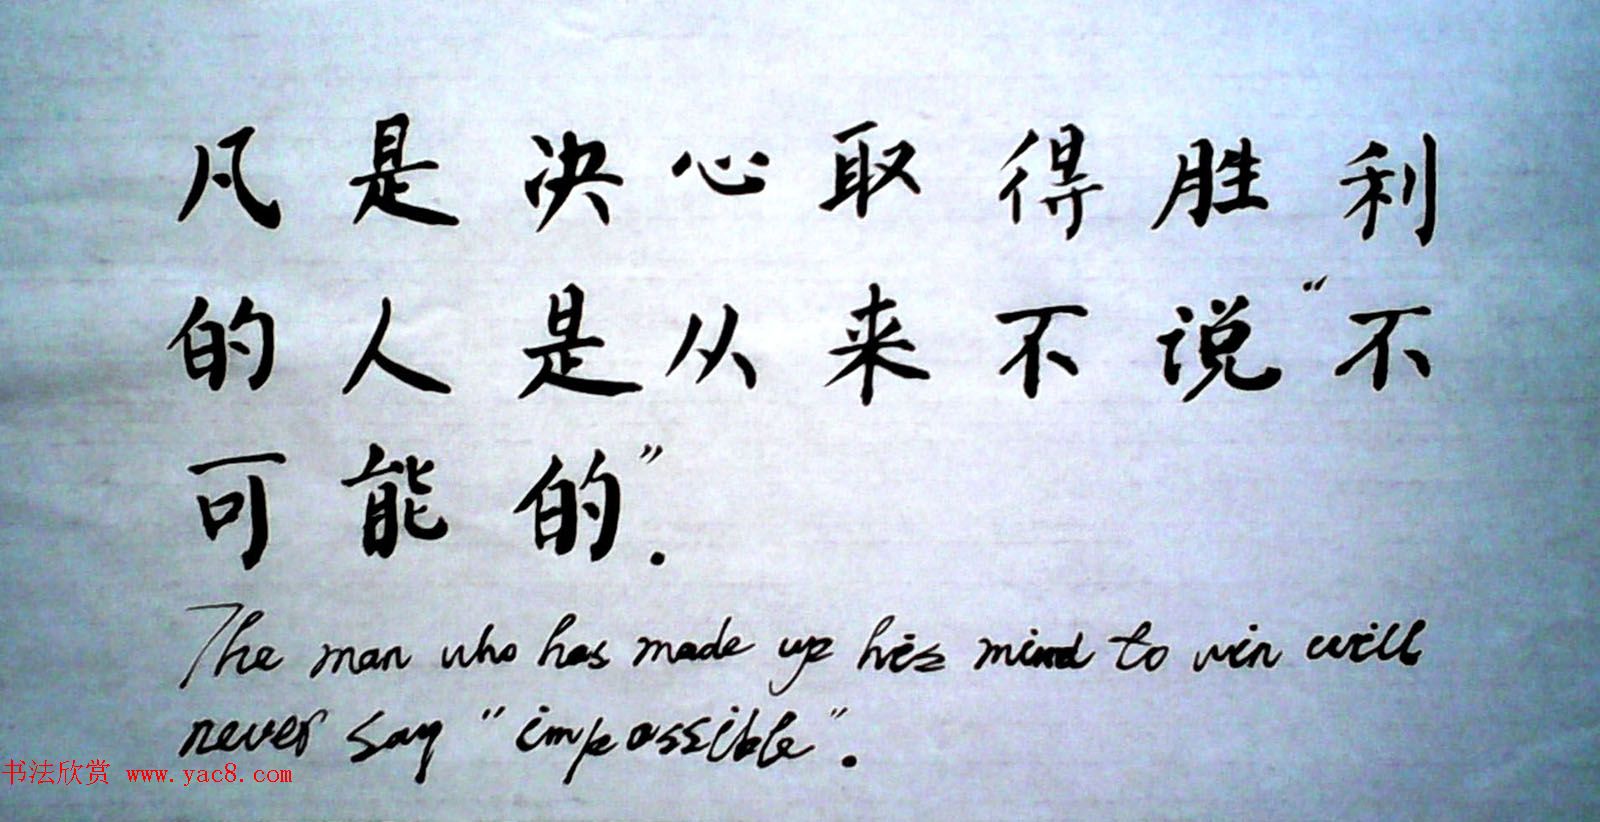 凡是决心取得胜利
的人是从来不说“不
可能的”.
The man who has made up his mind to win will
never say "impossible".
书法欣赏 www.yac8.com